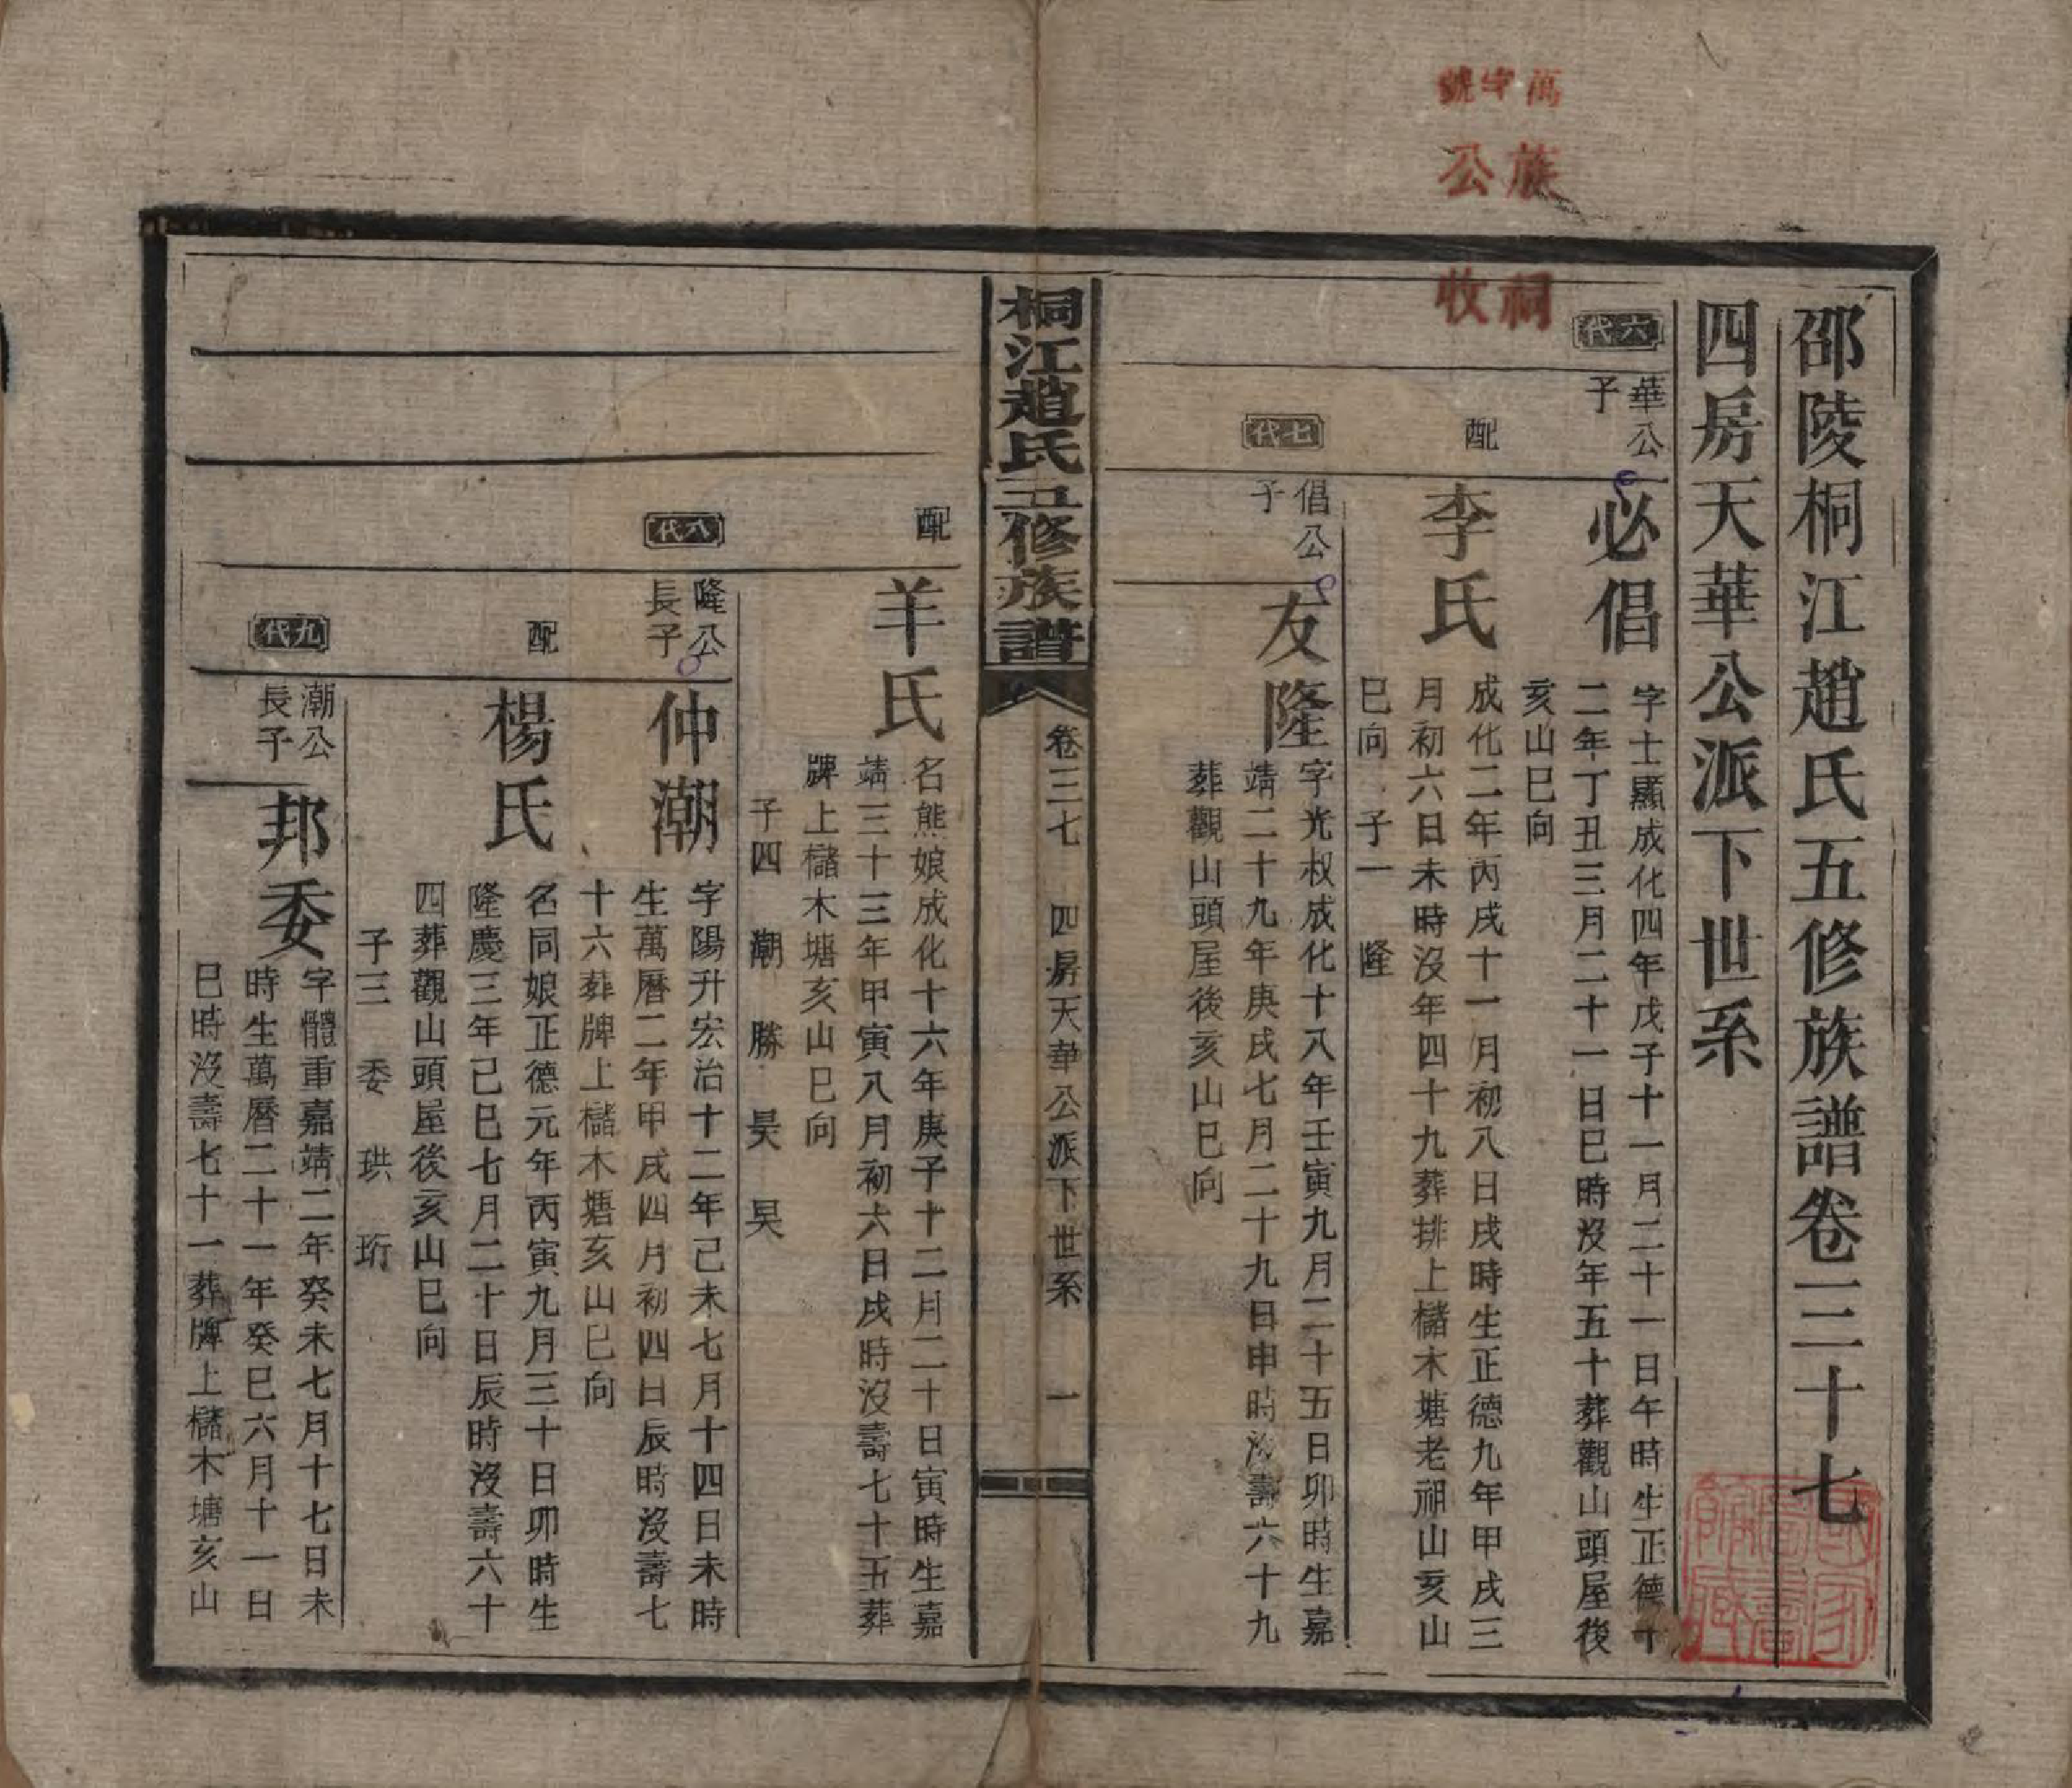 萬字號
族公
祠收
邵陵桐江趙氏五修族譜卷三十七
四房天華公派下世系
六代
華公
子
必倡
字士顯成化四年戊子十一月二十一日午時生正德十
二年丁丑三月二十一日巳時沒年五十葬觀山頭屋後
亥山巳向
配
李氏
成化二年丙戌十一月初八日戌時生正德九年甲戌三
月初六日未時沒年四十九葬排上櫧木塘老祖山亥山
巳向 子一 隆
七代
倡公
子
友隆
字光权成化十八年壬寅九月二十五日卯時生嘉
靖二十九年庚戌七月二十九日申時沒壽六十九
葬觀山頭屋後亥山巳向
桐江趙氏五修族譜
卷三七 四房天華公派下世系 一
配
羊氏
名熊娘成化十六年庚子十二月二十日寅時生嘉
靖三十三年甲寅八月初六日戌時沒壽七十五葬
牌上櫧木塘亥山巳向
子四 潮 勝 昊 旲
八代
隆公
長子
仲潮
字陽升宏治十二年己未七月十四日未時
生萬曆二年甲戌四月初四日辰時沒壽七
十六葬牌上櫧木塘亥山巳向
配
楊氏
名同娘正德元年丙寅九月三十日卯時生
隆慶三年己巳七月二十日辰時沒壽六十
四葬觀山頭屋後亥山巳向
子三 委 珙 珩
九代
潮公
長子
邦委
字體重嘉靖二年癸未七月十七日未
時生萬曆二十一年癸巳六月十一日
巳時沒壽七十一葬牌上櫧木塘亥山